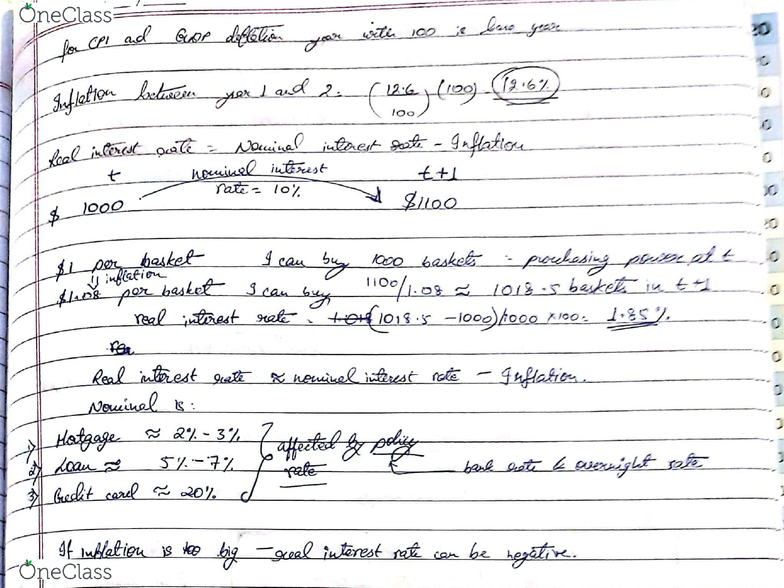 OneClass
for CPI and GDP deflation year with 100 is base year
Inflation between year 1 and 2 = (12.6 / 100) (100) = 12.6%
Real interest rate = Nominal interest rate - Inflation
t nominal interest t+1
rate = 10%
$ 1000 $1100
$1 per basket I can buy 1000 baskets - purchasing power at t
⇓ inflation
$1.08 per basket I can buy 1100/1.08 ≈ 1018.5 baskets in t+1
real interest rate = (1018.5 - 1000)/1000 x100 = 1.85%
Real interest rate ≈ nominal interest rate - Inflation.
Nominal is:
1) Mortgage ≈ 2% - 3%
affected by policy
2) Loan ≈ 5% - 7%
rate
bank rate & overnight rate
3) Credit card ≈ 20%
If inflation is too big - real interest rate can be negative.
OneClass